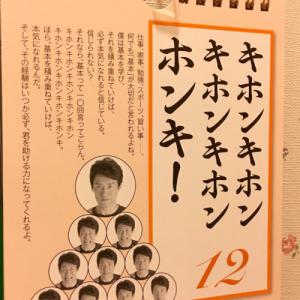 キホンキホン
キホンキホン
ホンキ！
12
仕事、家事、勉強、スポーツ、習い事――、
何でも「基本」が大切だと言われるよね。
僕は基本を学び、
それを積み重ねていけば、
必ず本気になれると信じている。
信じられない？
それなら、“基本”って一〇回言ってごらん。
キホンキホンキホンキホン
キホンキホンキホンキホンキホンキ。
ほら、基本を積み重ねていけば、
本気になれるんだ。
そして、その経験はいつか必ず、君を助ける力になってくれるよ。